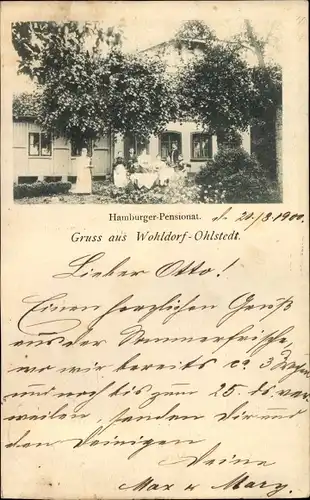 Hamburger-Pensionat. d. 20./8. 1900.
Gruss aus Wohldorf-Ohlstedt.
Lieber Otto!
Einen herzlichen Gruß
aus der Sommerfrische,
wo wir bereits ca. 3 Wochen
und noch bis zum 25. ds. ver-
weilen, senden Dir und
den Deinigen
Deine
Max u Mary.